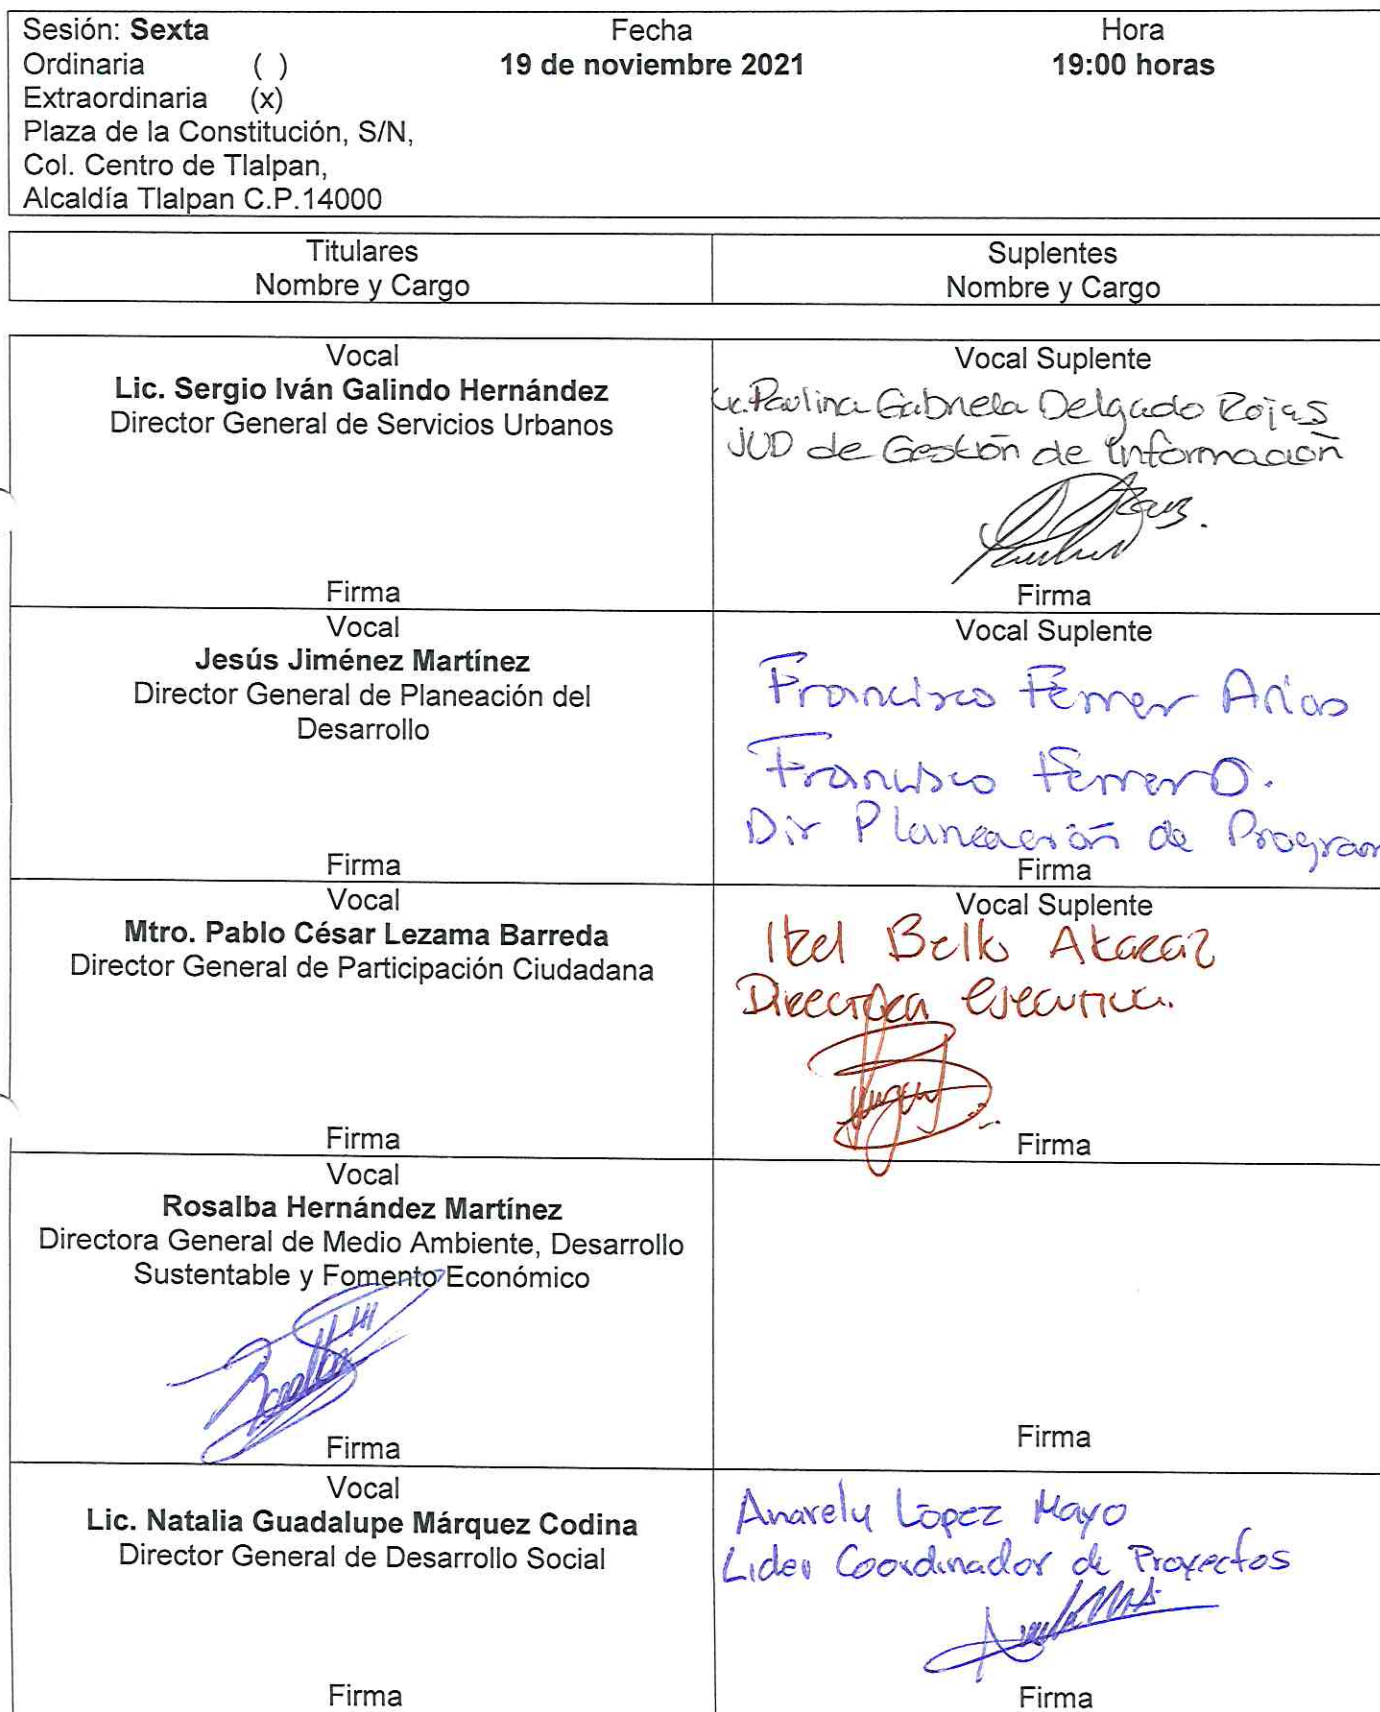 Sesión: Sexta
Fecha
Hora
Ordinaria ( )
19 de noviembre 2021
19:00 horas
Extraordinaria (x)
Plaza de la Constitución, S/N,
Col. Centro de Tlalpan,
Alcaldía Tlalpan C.P.14000
Titulares
Nombre y Cargo
Suplentes
Nombre y Cargo
Vocal
Lic. Sergio Iván Galindo Hernández
Director General de Servicios Urbanos
Firma
Vocal Suplente
Lic. Paulina Gabriela Delgado Rojas
JUD de Gestión de Información
Firma
Vocal
Jesús Jiménez Martínez
Director General de Planeación del
Desarrollo
Firma
Vocal Suplente
Francisco Ferrer Arias
Francisco Ferrer
Dir Planeación de Program
Firma
Vocal
Mtro. Pablo César Lezama Barreda
Director General de Participación Ciudadana
Firma
Vocal Suplente
Bello
Directora Ejecutiva.
Firma
Vocal
Rosalba Hernández Martínez
Directora General de Medio Ambiente, Desarrollo
Sustentable y Fomento Económico
Firma
Firma
Vocal
Lic. Natalia Guadalupe Márquez Codina
Director General de Desarrollo Social
Firma
Anarely López Mayo
Lider Coordinador de Proyectos
Firma